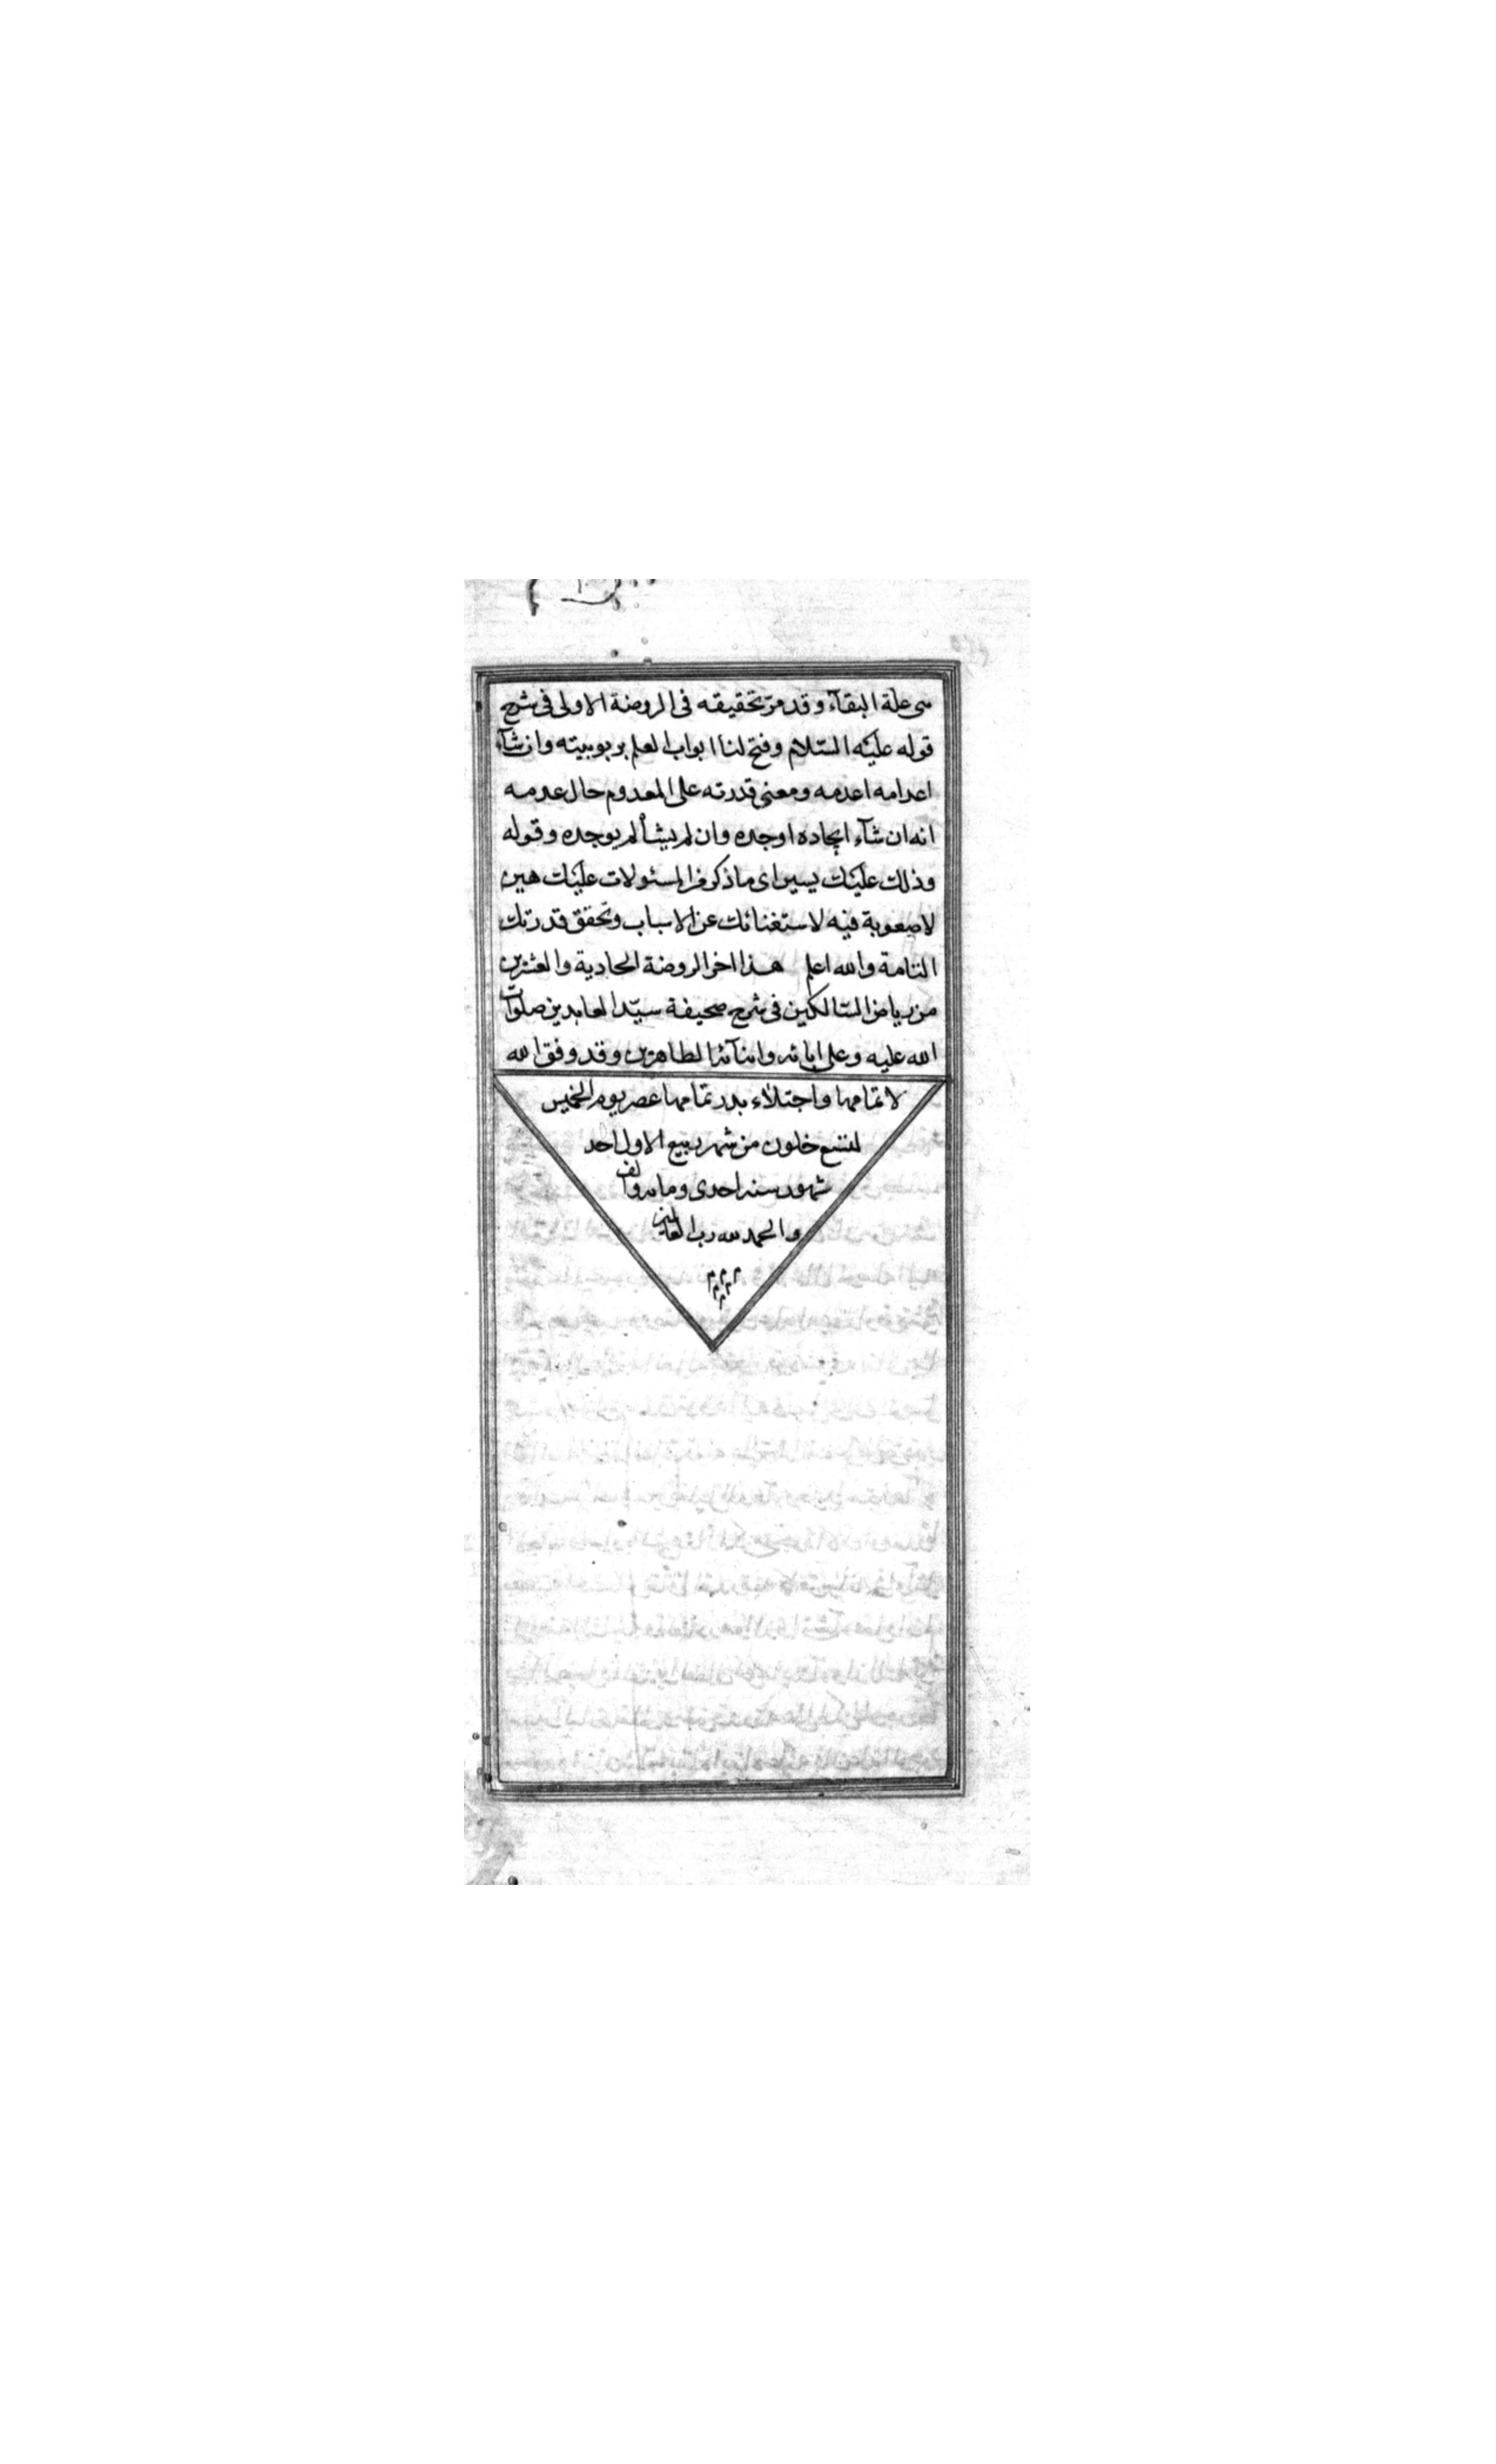 هى علة البقآء وقد مرّ تحقيقه فى الروضة الاولى فى شرح
قوله عليه السّلام وفتح لنا ابواب العلم بربوبيته وان شآء
اعدامه اعدمه ومعنى قدرته على المعدوم حال عدمه
انه ان شآء ايجاده اوجده وان لم يشأ لم يوجده وقوله
وذلك عليك يسير اى ما ذكر من المسئولات عليك هين
لا صعوبة فيه لاستغنائك عن الاسباب وتحقق قدرتك
التامة والله اعلم هذا اخر الروضة الحادية والعشرين
من رياض السّالكين فى شرح صحيفة سيّد العابدين صلوات
الله عليه وعلى ابائه وابنآئه الطاهرين وقد وفق الله
لاتمامها واجتلاء بدر تمامها عصر يوم الخميس
لتسع خلون من شهر ربيع الاول احد
شهور سنه احدى ومائه والف
والحمد لله رب العالمين